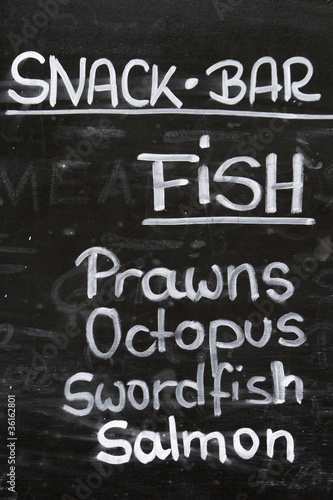 SNACK·BAR
FiSH
Prawns
Octopus
Swordfish
Salmon